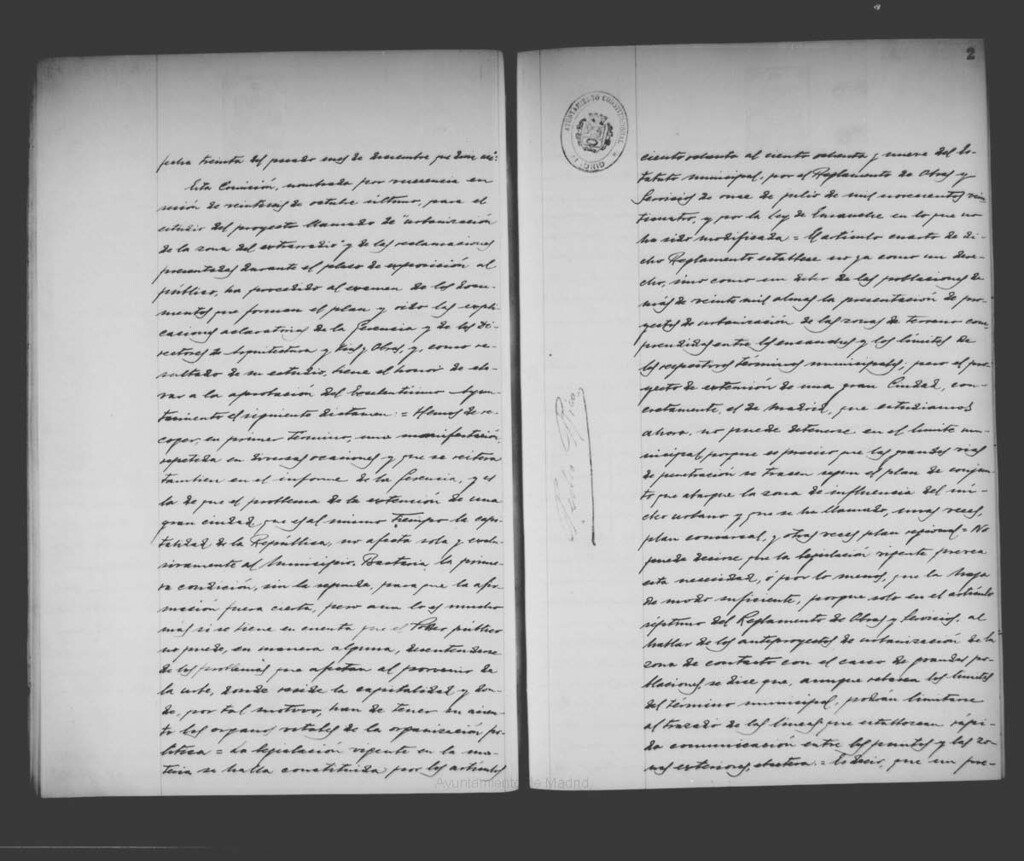 fecha treinta del pasado mes de Diciembre, que dice así:
Esta Comisión, nombrada por V.E. en
sesión de veintiseis de octubre último, para el
estudio del proyecto llamado de "urbanización
de la zona del extrarradio" y de las reclamaciones
presentadas durante el plazo de exposición al
público, ha procedido al examen de los docu-
mentos que forman el plan y oído las expli-
caciones aclaratorias de la Gerencia y de los Di-
rectores de Arquitectura y Vías y Obras, y, como re-
sultado de su estudio, tiene el honor de ele-
var a la aprobación del Excelentísimo Ayun-
tamiento el siguiente dictamen: = Hemos de re-
coger, en primer término, una manifestación,
repetida en diversas ocasiones y que se reitera
tambien en el informe de la Gerencia, y es
la de que el problema de la extensión de una
gran ciudad, que es al mismo tiempo la capi-
talidad de la República, no afecta sola y exclu-
sivamente al Municipio. Bastaría la prime-
ra condición, sin la segunda, para que la afir-
mación fuera cierta, pero aun lo es mucho
más si se tiene en cuenta que el Poder público
no puede, en manera alguna, desentenderse
de los problemas que afectan al porvenir de
la urbe, donde reside la capitalidad y don-
de, por tal motivo, han de tener su asien-
to los órganos vitales de la organización po-
lítica = La legislación vigente en la ma-
teria se halla constituida por los artículos
2
AYUNTAMIENTO CONSTITUCIONAL
ciento ochenta al ciento ochenta y nueve del Es-
tatuto Municipal, por el Reglamento de Obras y
Servicios de once de julio de mil novecientos vein-
ticuatro, y por la ley de Ensanche en lo que no
ha sido modificada = El artículo cuarto de di-
cho Reglamento establece no ya como un dere-
cho, sino como un deber de las poblaciones de
más de veinte mil almas la presentación de pro-
yectos de urbanización de las zonas de terreno com-
prendidas entre los ensanches y los límites de
los respectivos términos municipales, pero el pro-
yecto de extensión de una gran Ciudad, con-
cretamente, el de Madrid, que estudiamos
ahora, no puede detenerse en el límite mu-
nicipal, porque es preciso que las grandes vías
de penetración se tracen según el plan de conjun-
to que abarque la zona de influencia del nú-
cleo urbano y que se ha llamado, unas veces,
plan comarcal, y otras veces plan regional = No
puede decirse que la legislación vigente prevea
esta necesidad, ó por lo menos, que la haga
de modo suficiente, porque solo en el artículo
séptimo del Reglamento de Obras y Servicios, al
hablar de los anteproyectos de urbanización de la
zona de contacto con el casco de grandes po-
blaciones, se dice que, aunque rebasen los límites
del término municipal, podrán limitarse
al trazado de las líneas que establezcan rápi-
da comunicación entre los puntos y las zo-
nas exteriores, etcétera. = Es decir, que un pre-
Ayuntamiento de Madrid